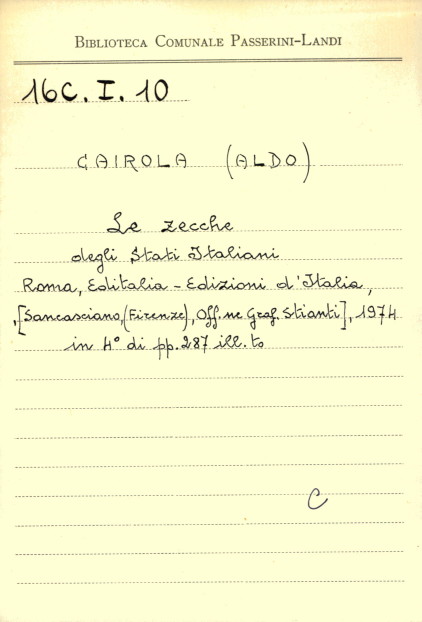 BIBLIOTECA COMUNALE PASSERINI-LANDI
16C. I. 10
CAIROLA (ALDO)
Le zecche
degli Stati Italiani
Roma, Editalia - Edizioni d'Italia,
,[Sancasciano,(Firenze), Off.ne Graf. Stianti], 1974
in 4° di pp. 287 ill.to
C